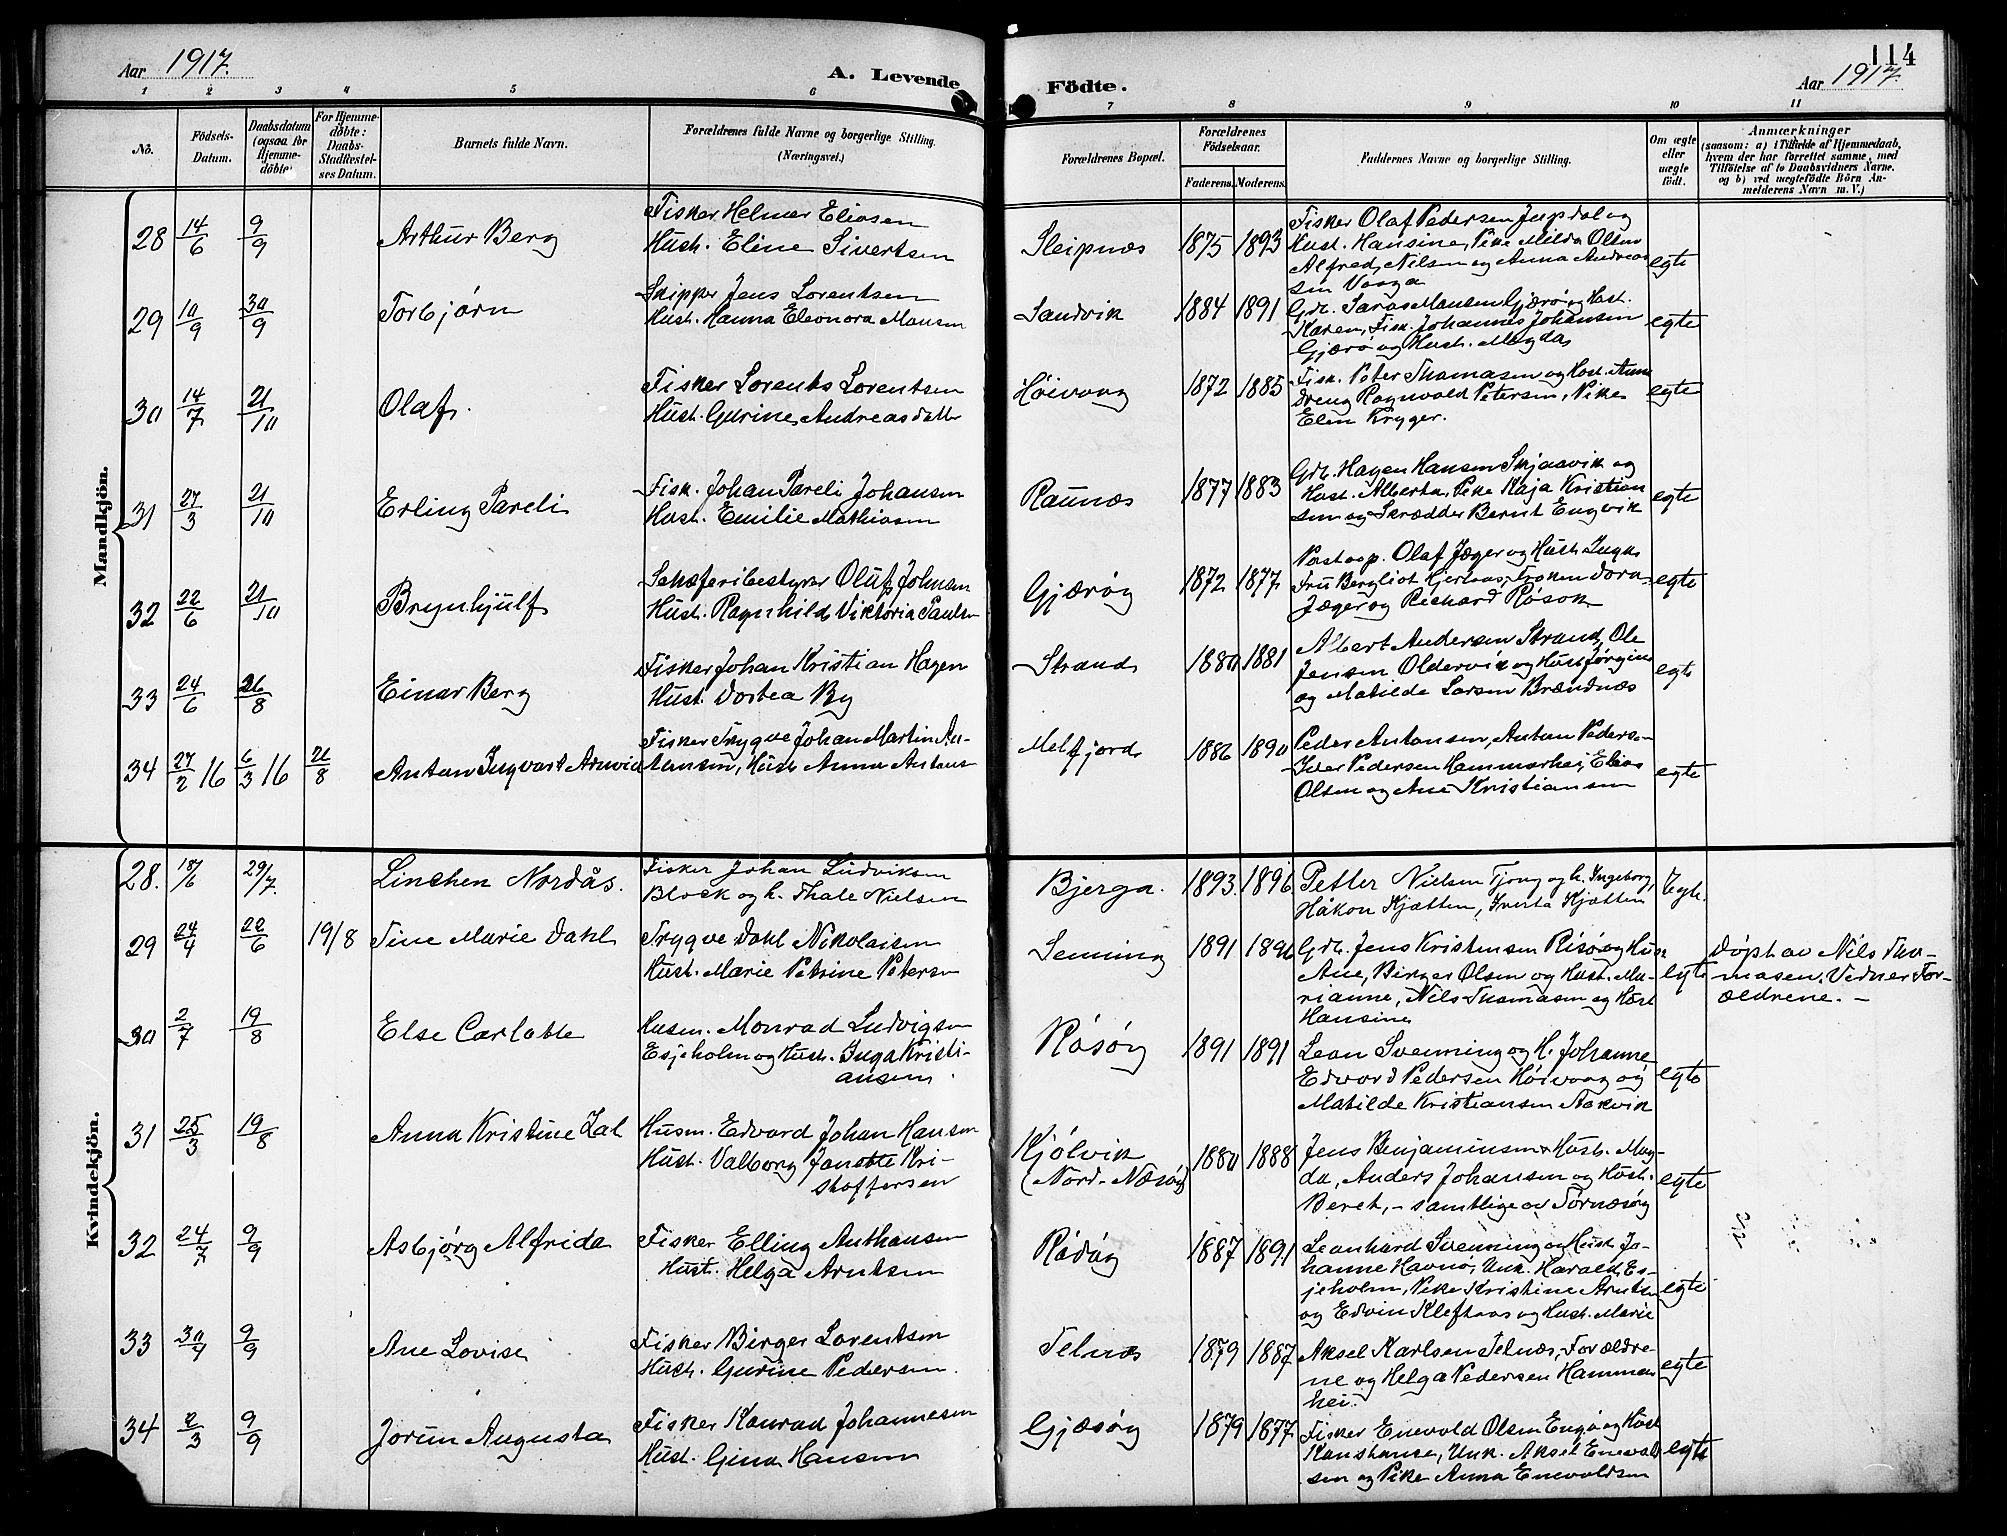 Aar 1917.
A. Levende
Födte.
114
Aar 1917.
1 2 3 4 5 6 7 8 9 10 11
No.
Födsels-
Datum.
Daabsdatum
(ogsaa for
Hjemme-
döbte.
For Hjemme-
döbte:
Daabs-
Stadfæstel-
ses Datum.
Barnets fulde Navn.
Forældrenes fulde Navne og borgerlige Stilling.
(Næringsvei.)
Forældrenes Bopæl.
Forældrenes
Födselsaar.
Faderens. Moderens.
Faddernes Navne og borgerlige Stilling.
Om ægte
eller
uægte
födt.
Anmærkninger
(saasom: a) i Tilfælde af Hjemmedaab,
hvem der har forrettet samme, med
Tilföielse af to Daabsvidners Navne.
og b) ved uægtefödte Börn An-
melderens Navn m. V.)
Mandkjön.
28 14/6 9/9 Arthur Berg
Fisker Helmer Eliasen
Hust. Eline Sivertsen
Sleipnæs 1875 1893
Fisker Olaf Pedersen Jupdal og
Hust. Hansine, Pike Milda Olsen
Alfred Nilsen og Anna Andreas
sen Vaaga
egte
29 10/9 30/9 Torbjørn
Skipper Jens Lorentsen
Hust. Hanna Eleonora Monsen
Sandvik 1884 1891
Gdr. Monsen Gjærø og Hust.
Karen, Fisk. Johannes Johansen
Gjærø og Hust. Magda
egte
30 14/7 21/10 Olaf.
Fisker Lorents Lorentsen
Hust. Gurine Andreasdatter
Høivaag 1872 1885
Fisk. Peter Thomasen og Hust. Anna
Dreng Ragnvald Petersen, Pike
Elen Kryger.
egte
31 27/3 21/10 Erling Pareli
Fisk. Johan Pareli Johansen
Hust. Emilie Mathiasen
Raunæs 1877 1883
Gdr. Hagen Hansen Skjaavik og
Hust. Alberta, Pike Kaja Kristian
sen og Skrædder Bernt Engvik
egte
32 22/6 21/10 Brynhjulf
Schæferibestyrer Oluf Johnsen
Hust. Ragnhild Viktoria Paulsen
Gjærøy 1872 1877
Postaap. Olaf Jæger og Hust. Inga
Fru Bergliot, Frøken Dora
Jæger og Richard Røsok
egte
33 24/6 26/8 Einar Berg
Fisker Johan Kristian Hagen
Hust. Dortea By
Strand 1880 1881
Albert Andersen Strand, Ole
Jensen Oldervik og Hust. Jørgine
og Matilde Larsen Brændnæs
egte
34 27/2 16 6/3 16 26/8 Anton Ingvart Arnvid
Fisker Trygve Johan Martin An-
tonsen, Hust. Anna Antons
Melfjord 1886 1890
Peder Antonsen, Anton Peders-
Iver Pedersen Hammerhei, Elias
Olsen og Ane Kristiansen
egte
Kvindekjön.
28. 18/6 29/7. Linchen Nordås.
Fisker Johan Ludviksen
Block og h. Thale Nielsen
Bjerga. 1893. 1896
Petter Nielsen Tjong og h. Ingeborg,
Håkon Kjætten, Kjætten
Egte.
29 24/4 22/6 19/8 Tine Marie Dahl
Trygve Dahl Nikolaisen
Hust. Marie Petrine Petersen
Senning 1891 1896
Gdr. Jens Kristensen Risø og Hust
Ane, Birger Olsen og Hust. Ma-
rianne, Nils Thomasen og Hust
Hansine
egte
Døpt av Nils Tho-
masen. Vidner For-
ældrene. -
30 2/7 19/8 Else Carlotte
Husm. Monrad Ludvigsen
Esjeholm og Hust. Inga Kristi-
ansen.
Røsøy 1891 1891
Leon Svenning og H. Johanne
Edward Pedersen Høivaag og
Matilde Kristiansen Aakvik
egte
31 25/3 19/8 Anna Kristine Zal
Husm. Edvard Johan Hansen
Hust. Valborg Janette Kri-
stoffersen
Kjølvik
(Nord-Næsøy)
1880 1888
Jens Benjaminsen & Hust. Mag-
da, Anders Johansen og Hust.
Beret, - samtlige av Tørnæsøy
egte
32 24/7 9/9 Asbjørg Alfride
Fisker Elling Anthonsen
Hust. Helga Arntsen
Rødøy 1887 1891
Leonhard Svenning og Hust. Jo-
hanne Havnø, Unk. Harald Es-
jeholm, Pike Kristine Arntsen
og Edvin Kleftaas og Hust. Marie
egte
33 30/4 9/9 Ane Lovise
Fisker Birger Lorentsen
Hust. Gurine Pedersen.
Telnæs 1879 1887
Aksel Karlsen Telnæs, Forældre-
ne og Helga Pedersen Hammer
hei.
egte
34 2/3 9/9 Jorun Augusta
Fisker Konrad Johannesen
Hust. Gina Hansen
Gjæsøy 1879 1877
Fisker Enevold Olsen Engø og Hust
Konstanse, Unk. Aksel Enevold
sen og Pike Anna Enevoldsen
egte